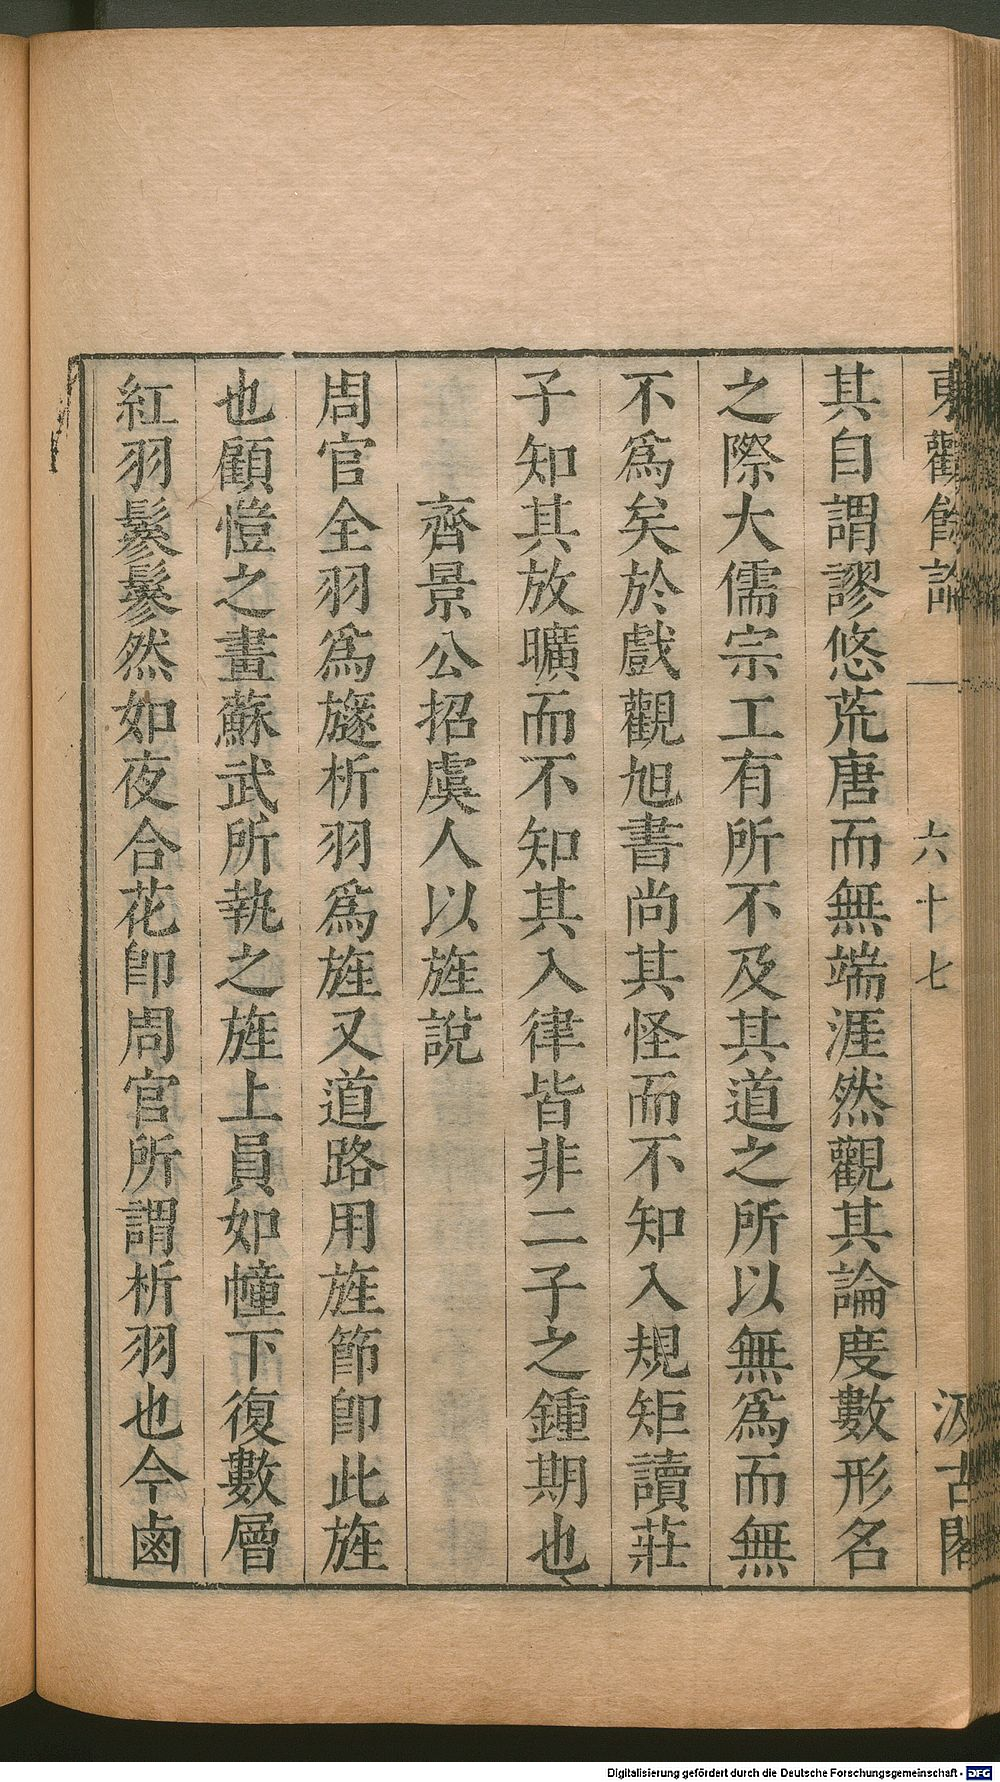 東觀餘論 六十七 汲古閣
其自謂謬悠荒唐而無端涯然觀其論度數形名
之際大儒宗工有所不及其道之所以無爲而無
不爲矣於戲觀旭書尚其怪而不知入規矩讀莊
子知其放曠而不知其入律皆非二子之鍾期也
齊景公招虞人以旌說
周官全羽爲旞析羽爲旌又道路用旌節卽此旌
也顧愷之畫蘇武所執之旌上員如幢下復數層
紅羽鬖鬖然如夜合花卽周官所謂析羽也今鹵
Digitalisierung gefördert durch die Deutsche Forschungsgemeinschaft - DFG